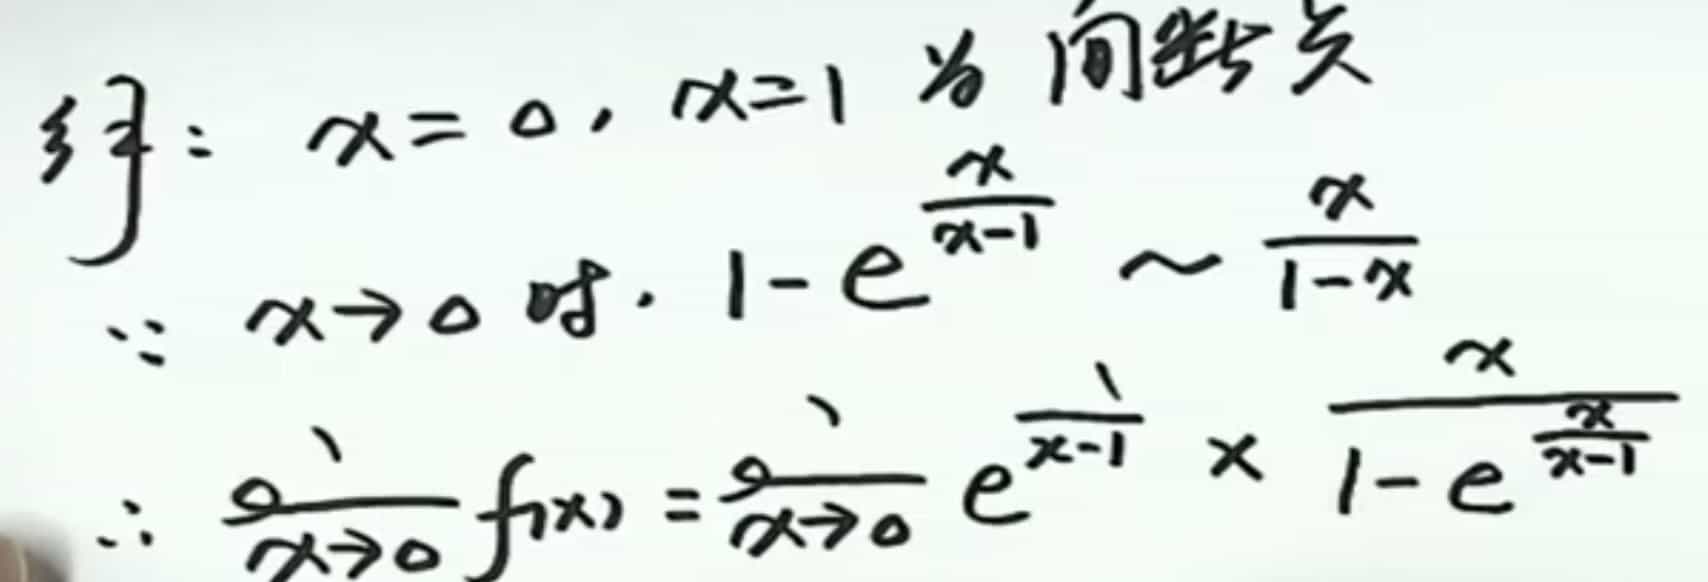 解: x=0, x=1 为间断点
∵ x→0 时. 1-e^{\frac{x}{x-1}} ~ \frac{x}{1-x}
∴ \lim_{x→0} f(x) = \lim_{x→0} e^{\frac{1}{x-1}} × \frac{x}{1-e^{\frac{x}{x-1}}}